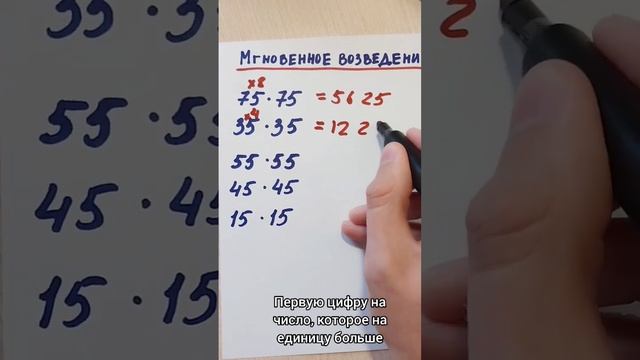 МГНОВЕННОЕ ВОЗВЕДЕНИ
×8
75 · 75 = 5625
×4
35 · 35 = 122
55 · 55
45 · 45
15 · 15
Первую цифру на
число, которое на
единицу больше